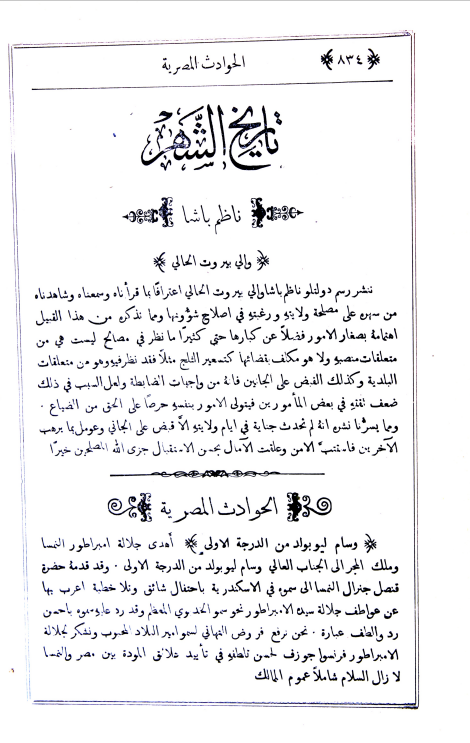 ﴿ ٨٣٤ ﴾
الحوادث المصرية
تاريخ الشهر
ناظم باشا
﴿ والي بيروت الحالي ﴾
ننشر رسم دولتلو ناظم باشا والي بيروت الحالي اعترافًا بما قرأناه وسمعناه وشاهدناه
من سهره على مصلحة ولايتهِ ورغبتهِ في اصلاح شؤونها ومما نذكره من هذا القبيل
اهتمامهُ بصغار الامور فضلاً عن كبارها حتى كثيرًا ما نظر في مصالح ليست هي من
متعلقات منصبهِ ولا هو مكلف بقضائها كتسعير الثلج مثلاً فقد نظر فيهِ وهو من متعلقات
البلدية وكذلك القبض على الجانين فانهُ من واجبات الضابطة ولعل السبب في ذلك
ضعف ثقتهِ في بعض المأمورين فيتولى الامور بنفسهِ حرصًا على الحق من الضياع .
ومما يسرُّنا نشره انهُ لم تحدث جناية في ايام ولايتهِ الاَّ قبض على الجاني وعومل بما يرهب
الآخرين فاستتبَّ الامن وعلقت الآمال بحسن الاستقبال جزى الله المصلحين خيرًا
الحوادث المصرية
﴿ وسام ليوبولد من الدرجة الاولى ﴾ أهدى جلالة امبراطور النمسا
وملك المجر الى الجناب العالي وسام ليوبولد من الدرجة الاولى . وقد قدمهُ حضرة
قنصل جنرال النمسا الى سموه في الاسكندرية باحتفال شائق وتلا خطبة اعرب بها
عن عواطف جلالة سيده الامبراطور نحو سمو الخديوي المعظم وقد رد عليهِ سموه باحسن
رد والطف عبارة . نحن نرفع فروض التهاني لسمو امير البلاد المحبوب ونشكر لجلالة
الامبراطور فرنسوا جوزف لحسن تلطفهِ في تأييد علائق المودة بين مصر والنمسا
لا زال السلام شاملاً عموم الممالك